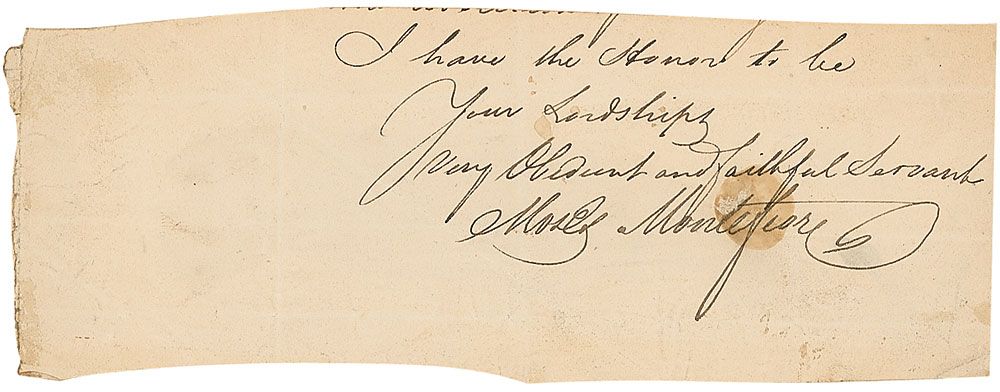 I have the Honor to be
Your Lordships
Very Obedient and faithful Servant
Moses Montefiore